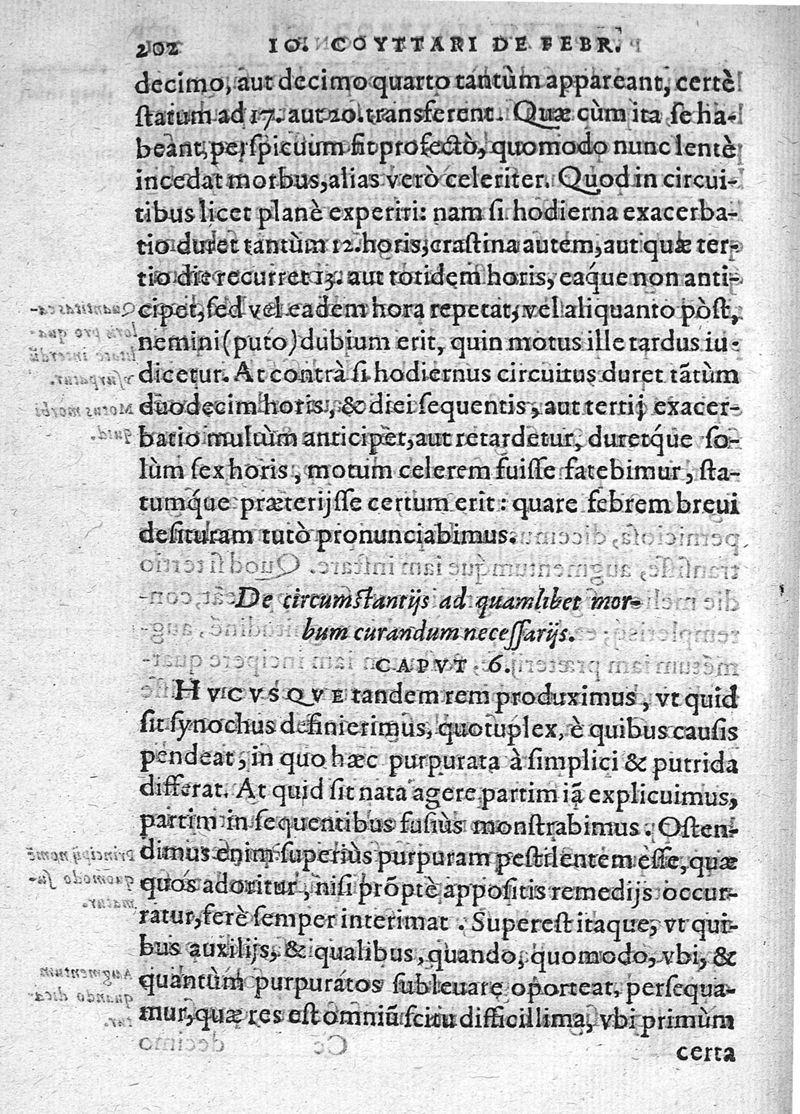 202 IO. COYTTARI DE FEBR.
decimo, aut decimo quarto tantùm appareant, certè
ſtatum ad 17. aut 20. transferent. Quæ cùm ita ſe ha-
beant, perſpicuum fit profectò, quomodo nunc lentè
incedat morbus, alias verò celeriter. Quod in circui-
tibus licet planè experiri: nam ſi hodierna exacerba-
tio duret tantùm 12. horis, craſtina autem, aut quæ ter-
tio die recurret 13. aut totidem horis, eáque non anti-
cipet, ſed vel eadem hora repetat, vel aliquanto pòſt,
nemini (puto) dubium erit, quin motus ille tardus iu-
dicetur. At contrà ſi hodiernus circuitus duret tãtùm
duodecim horis, & diei ſequentis, aut tertij exacer-
batio multùm anticipet, aut retardetur, duretq́ue ſo-
lùm ſex horis, motum celerem fuiſſe fatebimur, ſta-
tumq́ue præterijſſe certum erit: quare febrem breui
deſituram tutò pronunciabimus.
De circumſtantijs ad quamlibet mor-
bum curandum neceſſarijs.
CAPVT. 6.
HVCVSQVE tandem rem produximus, vt quid
ſit ſynochus definierimus, quotuplex, è quibus cauſis
pendeat, in quo hæc purpurata à ſimplici & putrida
differat. At quid ſit nata agere partim iã explicuimus,
partim in ſequentibus fuſiùs monſtrabimus. Oſten-
dimus enim ſuperiùs purpuram peſtilentem eſſe, quæ
quos adoritur, niſi prõptè appoſitis remedijs occur-
ratur, ferè ſemper interimat. Supereſt itaque, vt qui-
bus auxilijs, & qualibus, quando, quomodo, vbi, &
quantùm purpurátos ſubleuare oporteat, perſequa-
mur, quæ res eſt omniũ ſcitu difficillima, vbi primùm
certa